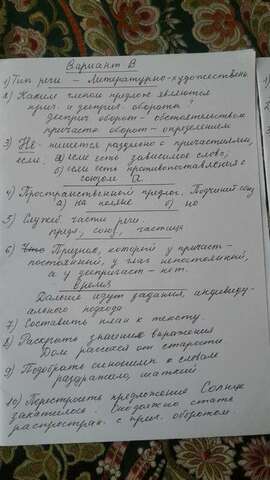 Вариант В
1) Тип речи - Литературно-художествен.
2) Каким членом предлож являются
прич. и дееприч. обороты?
дееприч. оборот - обстоятельством
причаст. оборот - определением
3) Не - пишется раздельно с причастиями,
если: а) если есть зависимое слово;
б) если есть противопоставлен с
союзом а.
4) Пространственной предлог. Подчинит союз
а) на поляне б) но
5) Служеб. части речи.
предл, союз, частица
6) Признак, который у причаст-
постоянный, у глаг непостоянный,
а у дееричаст - нет.
Время
Дальше идут задания, индивиду-
ального подхода
7) Составить план к тексту.
8) Раскрыть значение выражения
Дом рассохся от старости
9) Подобрать синонимы к словам
раздражало, шаткий
10) Перестроить предложение Солнце
закатилось. Оно должно стать
распростран. с прич. оборотом